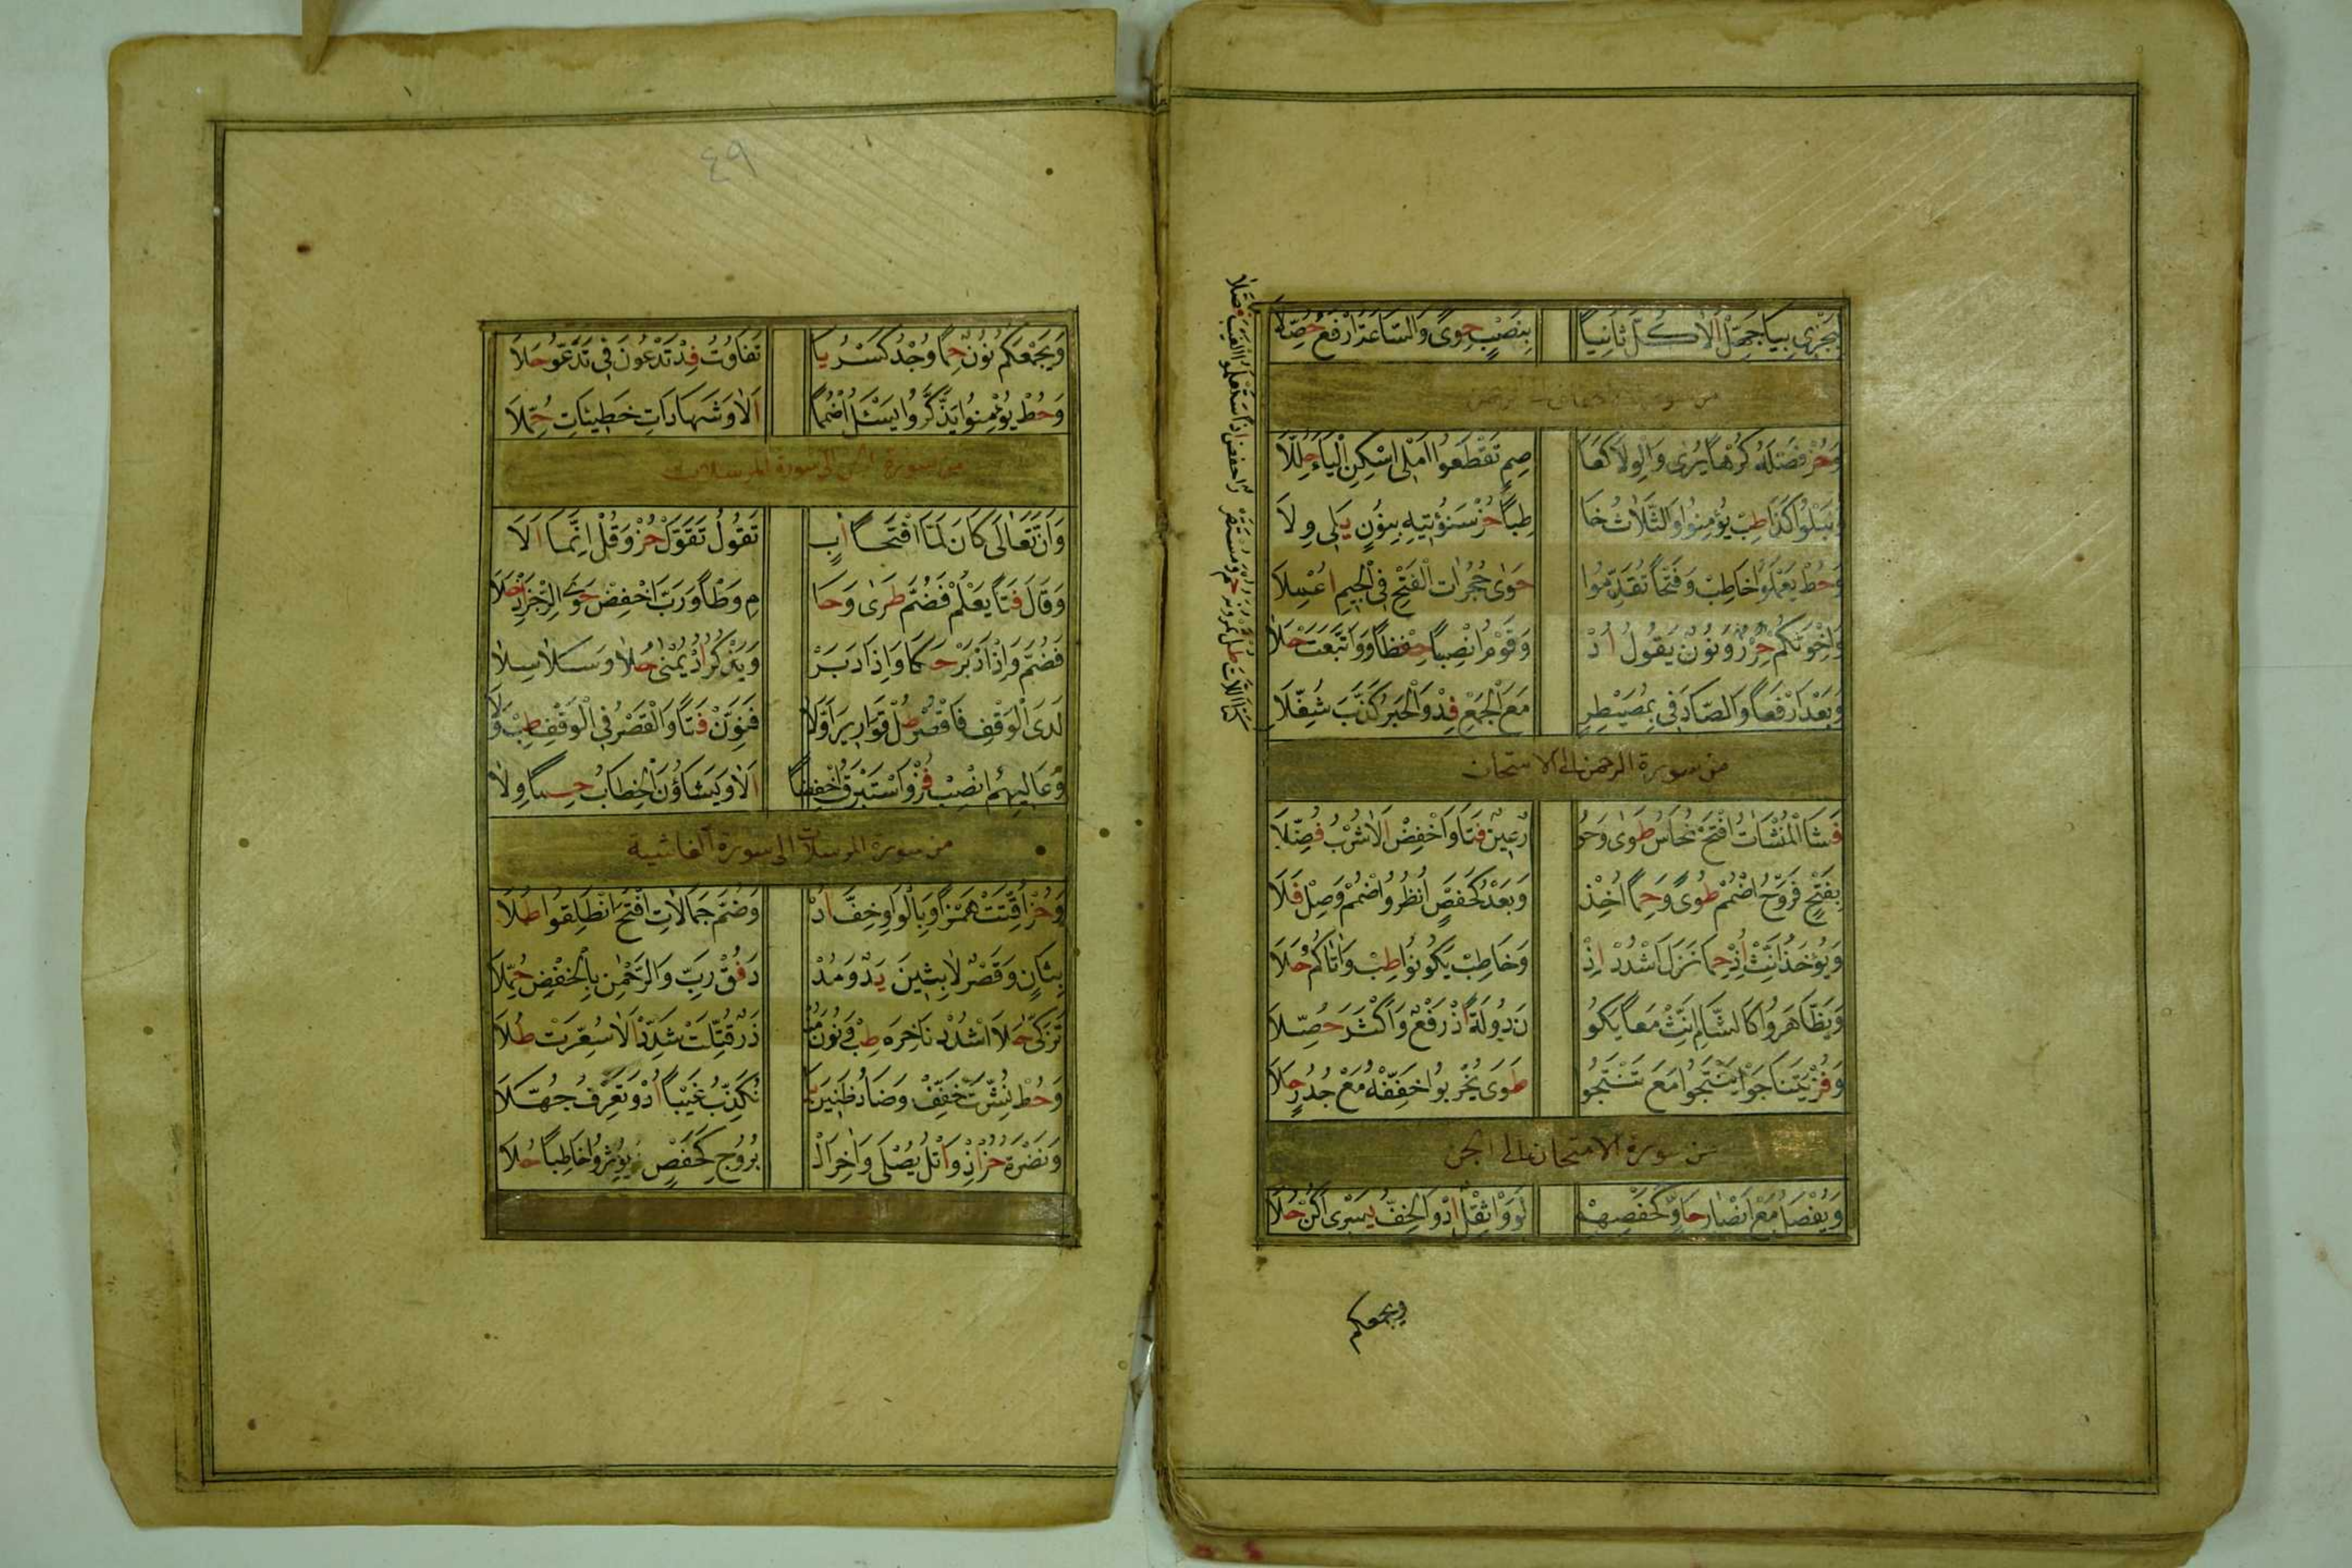 لِتُجْزٰى بِيَا جَهِّلْ اَلَا كُلُّ ثَانِيًا بِنَصْبٍ حَوٰى وَالسَّاعَةَ ارْفَعْ فُصِّلَا
من سورة الاحقاف الى الرحمن
وَحُزْ فَصْلُهُ كُرْهًا يُرٰى وَالْوِلَا كَعَا صِمٍ تَقْطَعُوا اُمْلِى اسْكِنِ الْيَاءَ حُلِّلَا
وَنَبْلُوا كَذَا طِبْ يُؤْمِنُوا وَالثَّلَاثُ خَا طِبًا حُزْ سَنُؤْتِيهِ بِنُونٍ يَلِى وِلَا
وَحُطْ يَعْمَلُوا خَاطِبْ وَفَتْحًا تَقَدَّمُوا حَوٰى حُجُرَاتِ الْفَتْحُ فِى الْجِيمِ اُعْمِلَا
وَاِخْوَتِكُمْ حِرْزٌ وَنُونُ يَقُولُ اُدْ وَقَوْمِ انْصِبًا حِفْظًا وَوَاتَّبَعَتْ حَلَا
وَبَعْدُ ارْفَعًا وَالصَّادُ فِى بِمُصَيْطِرِ مَعَ الْجَمْعِ فِدْ وَالْحَبْرُ كَذَّبَ ثُقِّلَا
من سورة الرحمن الى الامتحان
فَشَا الْمُنْشَآتُ افْتَحْ نُحَاسٌ طَوٰى وَحُو رُعِينٌ فَتًا وَاخْفِضْ اَلَا شُرْبُ فُصِّلَا
بِفَتْحٍ فَرَوْحُ اضْمُمْ طُوًى وَحِمًا اُخِذْ وَبَعْدُ كَحَفْصٍ اُنْظُرُوا اضْمُمْ وَصِلْ فَلَا
وَيُؤْخَذُ اَنِّثْ اِذْ حِمًا نَزَلَ اشْدُدْ اِذْ وَخَاطِبْ يَكُونُوا طِبْ وَاٰتَاكُمُ حَلَا
وَيَظَّاهَرُوا كَالشَّامِ اَنِّثْ مَعًا يَكُو نَ دُولَةً اُذْ رَفْعٌ وَاَكْثَرَ حُصِّلَا
وَفُزْ يَتَنَاجَوْا يَنْتَجُوا مَعَ تَنْتَجُو طَوٰى يُخْرِبُوا خَفِّفْهُ مَعْ جُدُرٍ حَلَا
من سورة الامتحان الى الجن
وَيُفْصَلُ مَعْ اَنْصَارَ حَاوٍ كَحَفْصِهِمْ لَوَوْا ثِقْلُ اِدْ وَالْخِفُّ يَسْرٰى اَكُنْ حَلَا
ويجمعكم
٤٩
وَيَجْمَعُكُمْ نُونٌ حِمًا وُجْدِ كَسْرُ يَا تَفَاوُتِ فِدْ تَدْعُونَ فِى تَدَّعُو حَلَا
وَحُطْ يُؤْمِنُوا يَذَّكَّرُوا يَسْئَلُ اضْمُمًا اَلَا وَشَهَادَاتٍ خَطِيئَاتِ حُمِّلَا
من سورة الجن الى سورة المرسلات
وَاَنَّهُ تَعَالٰى كَانَ لَمَّا افْتَحًا اَبٍ تَقُولُ تَقَوَّلَ حُزْ وَقُلْ اِنَّمَا اَلَا
وَقَالَ فَتًا يَعْلَمْ فَضُمَّ طَرٰى وَحَا مِ وَطْأً وَرَبُّ اخْفِضْ حَوٰى الرُّجْزَ اِذْ حَلَا
فَضُمَّ وَاِذْ اَدْبَرْ حَكٰى وَاِذَا دَبَرْ وَيَذْكُرُ اُدْ يُمْنٰى حُلًا وَسَلَاسِلَا
لَدَى الْوَقْفِ فَاقْصُرْ طُلْ قَوَارِيرَ اَوَّلَا فَنَوِّنْ فَتًا وَالْقَصْرُ فِى الْوَقْفِ طِبْ وَلَا
وَعَالِيهِمُ انْصِبْ فُزْ وَاِسْتَبْرَقُ اخْفِضًا اَلَا وَيَشَاؤُنَ الْخِطَابُ حِمًا وِلَا
من سورة المرسلات الى سورة الغاشية
وَحُزْ اُقِّتَتْ هَمْزًا وَبِالْوَاوِ خِفَّ اُدْ وَضُمَّ جِمَالَاتِ افْتَحِ انْطَلِقُوا طُلَا
بِثَانٍ وَقَصْرٌ لَابِثِينَ يَدٌ وَمُدْ دَ فُقْ رَبِّ وَالرَّحْمٰنِ بِالْخَفْضِ حُمِّلَا
تَزَكّٰى حَلَا اشْدُدْ نَاخِرَهْ طِبْ وَنُونُ مُنْ ذِرٌ قُتِّلَتْ شَدِّدْ اَلَا سُعِّرَتْ طُلَا
وَحُطْ نُشِّرَتْ خَفِّفْ وَضَادُ ظَنِينِ يَا تُكَذِّبُ غَيْبًا اُدْ وَتَعْرِفُ جُهِّلَا
وَنَضْرَةُ حُزْ اِذْ وَاتْلُ يُصْلٰى وَاٰخِرَ الْ بُرُوجِ كَحَفْصٍ يُؤْثِرُوا خَاطِبًا حَلَا